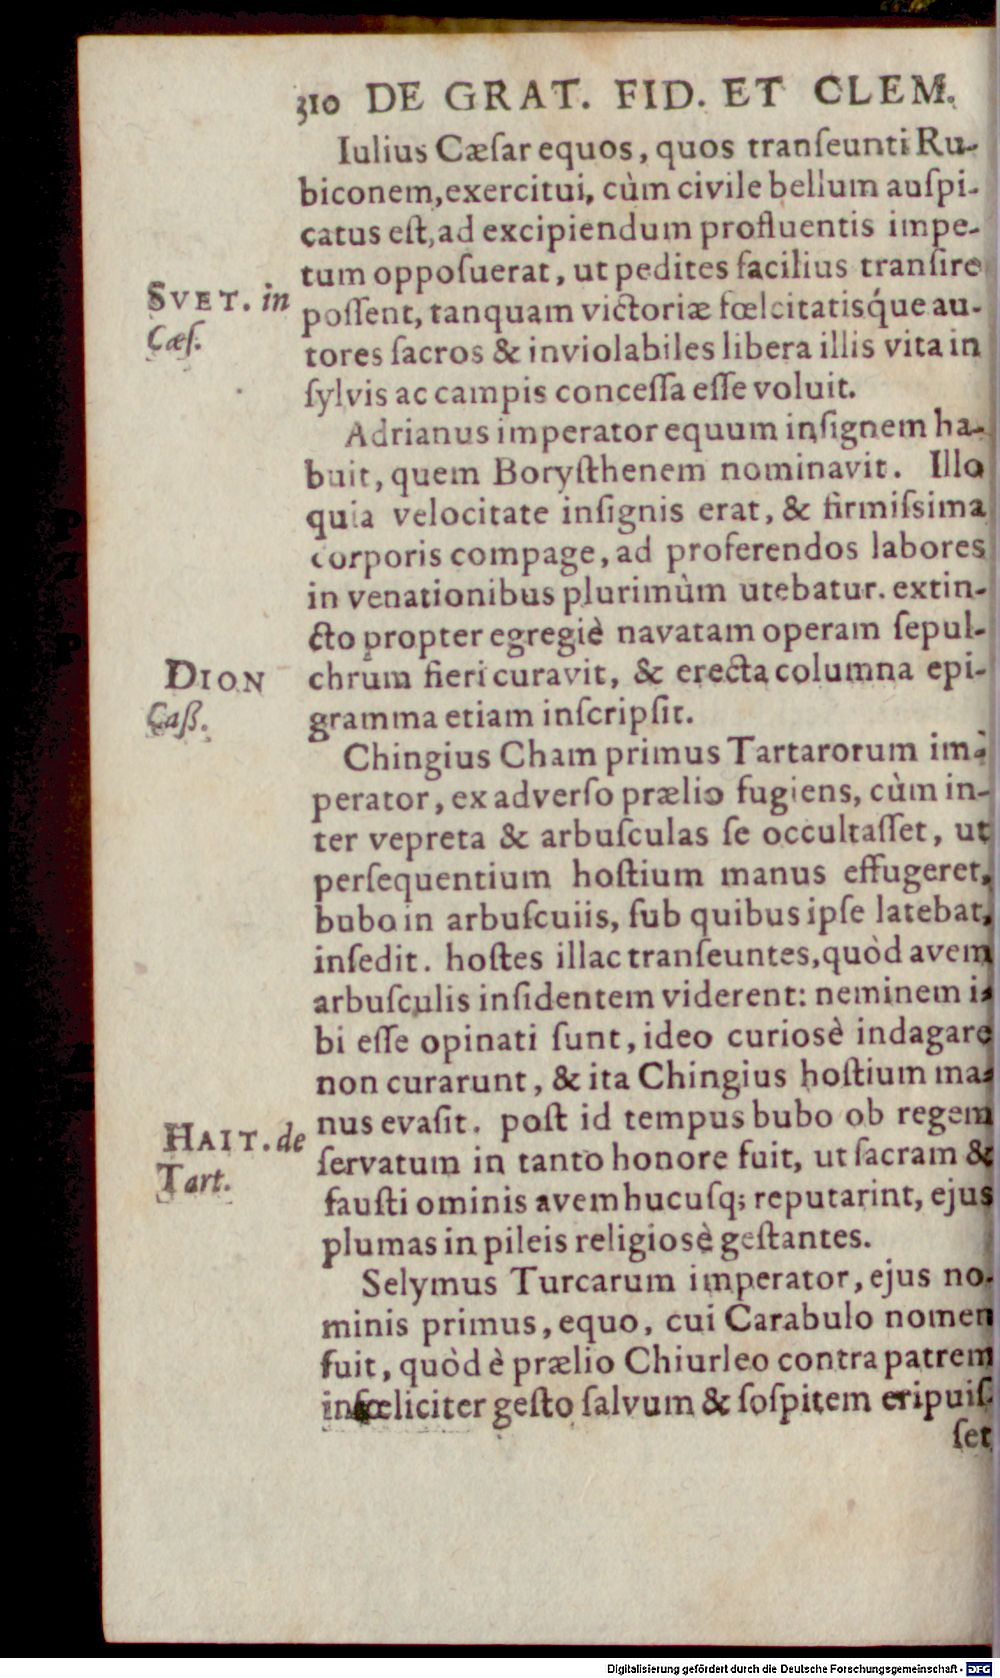 310 DE GRAT. FID. ET CLEM.
Iulius Cæſar equos, quos tranſeunti Ru-
biconem, exercitui, cùm civile bellum auſpi-
catus eſt, ad excipiendum profluentis impe-
tum oppoſuerat, ut pedites facilius tranſire
SVET. in
Cæſ.
poſſent, tanquam victoriæ fœlcitatisq́ue au-
tores ſacros & inviolabiles libera illis vita in
ſylvis ac campis conceſſa eſſe voluit.
Adrianus imperator equum inſignem ha-
buit, quem Boryſthenem nominavit. Illo
quia velocitate inſignis erat, & firmiſsima
corporis compage, ad proferendos labores
in venationibus plurimùm utebatur. extin-
cto propter egregiè navatam operam ſepul-
DION
Caß.
chrum fieri curavit, & erecta columna epi-
gramma etiam inſcripſit.
Chingius Cham primus Tartarorum im-
perator, ex adverſo prælio fugiens, cùm in-
ter vepreta & arbuſculas ſe occultaſſet, ut
perſequentium hoſtium manus effugeret,
bubo in arbuſcuiis, ſub quibus ipſe latebat,
inſedit. hoſtes illac tranſeuntes, quòd avem
arbuſculis inſidentem viderent: neminem i-
bi eſſe opinati ſunt, ideo curiosè indagare
non curarunt, & ita Chingius hoſtium ma-
HAIT. de
Tart.
nus evaſit. poſt id tempus bubo ob regem
ſervatum in tanto honore fuit, ut ſacram &
fauſti ominis avem hucuſq; reputarint, ejus
plumas in pileis religiosè geſtantes.
Selymus Turcarum imperator, ejus no-
minis primus, equo, cui Carabulo nomen
fuit, quòd è prælio Chiurleo contra patrem
infœliciter geſto ſalvum & ſoſpitem eripuiſ-
ſet
Digitalisierung gefördert durch die Deutsche Forschungsgemeinschaft - DFG